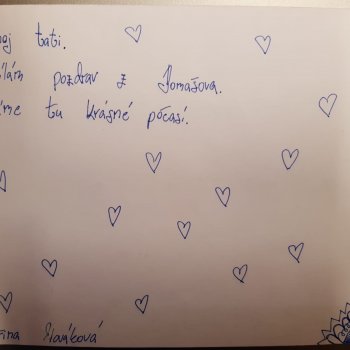 oj tati.
ílám pozdrav z Domašova.
áme tu krásné počasí.
ina Slavíková